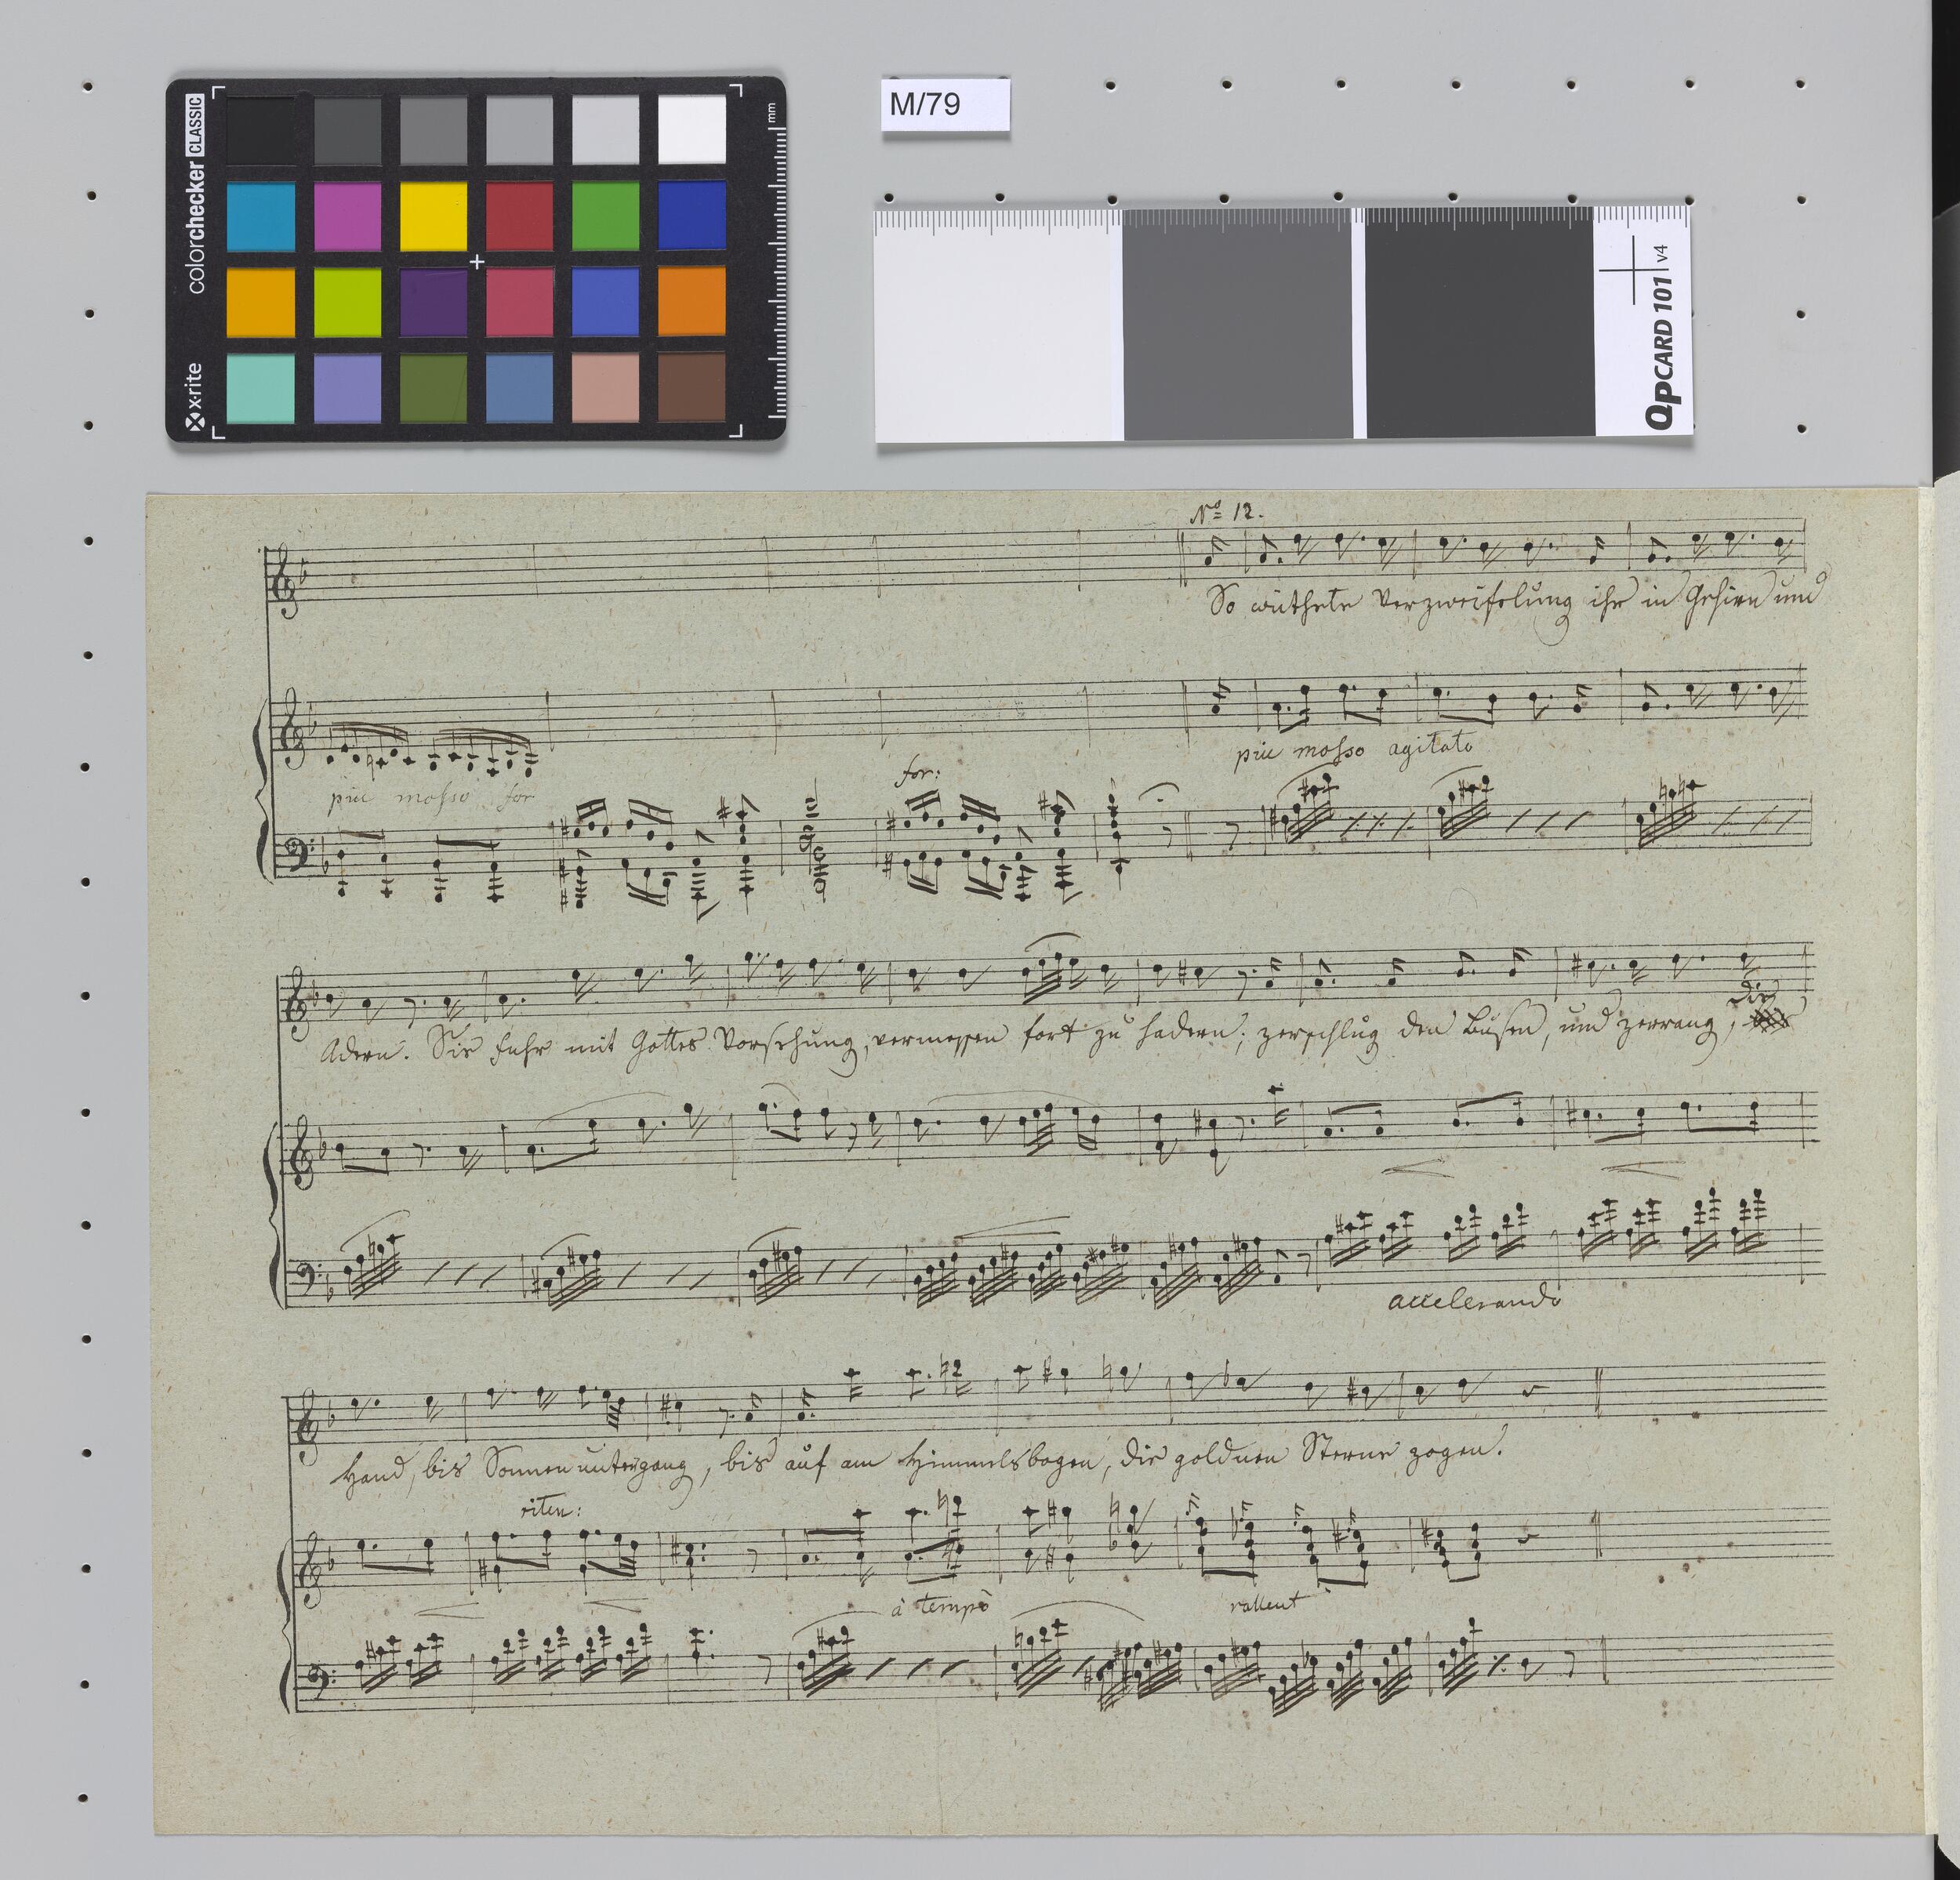 colorchecker CLASSIC
x-rite
mm
M/79
QPCARD 101 v4
No 12.
So wüthete Verzweifelung ihr in Gehirn und
più mosso agitato
for:
più mosso for
Adern. Sie fuhr mit Gottes Vorsehung, vermessen fort zu hadern; zerschlug den Busen, und zerrang, die
accelerando
Hand, bis Sonnenuntergang, bis auf am Himmelsbogen, die goldnen Sterne zogen.
riten:
à tempo
rallent